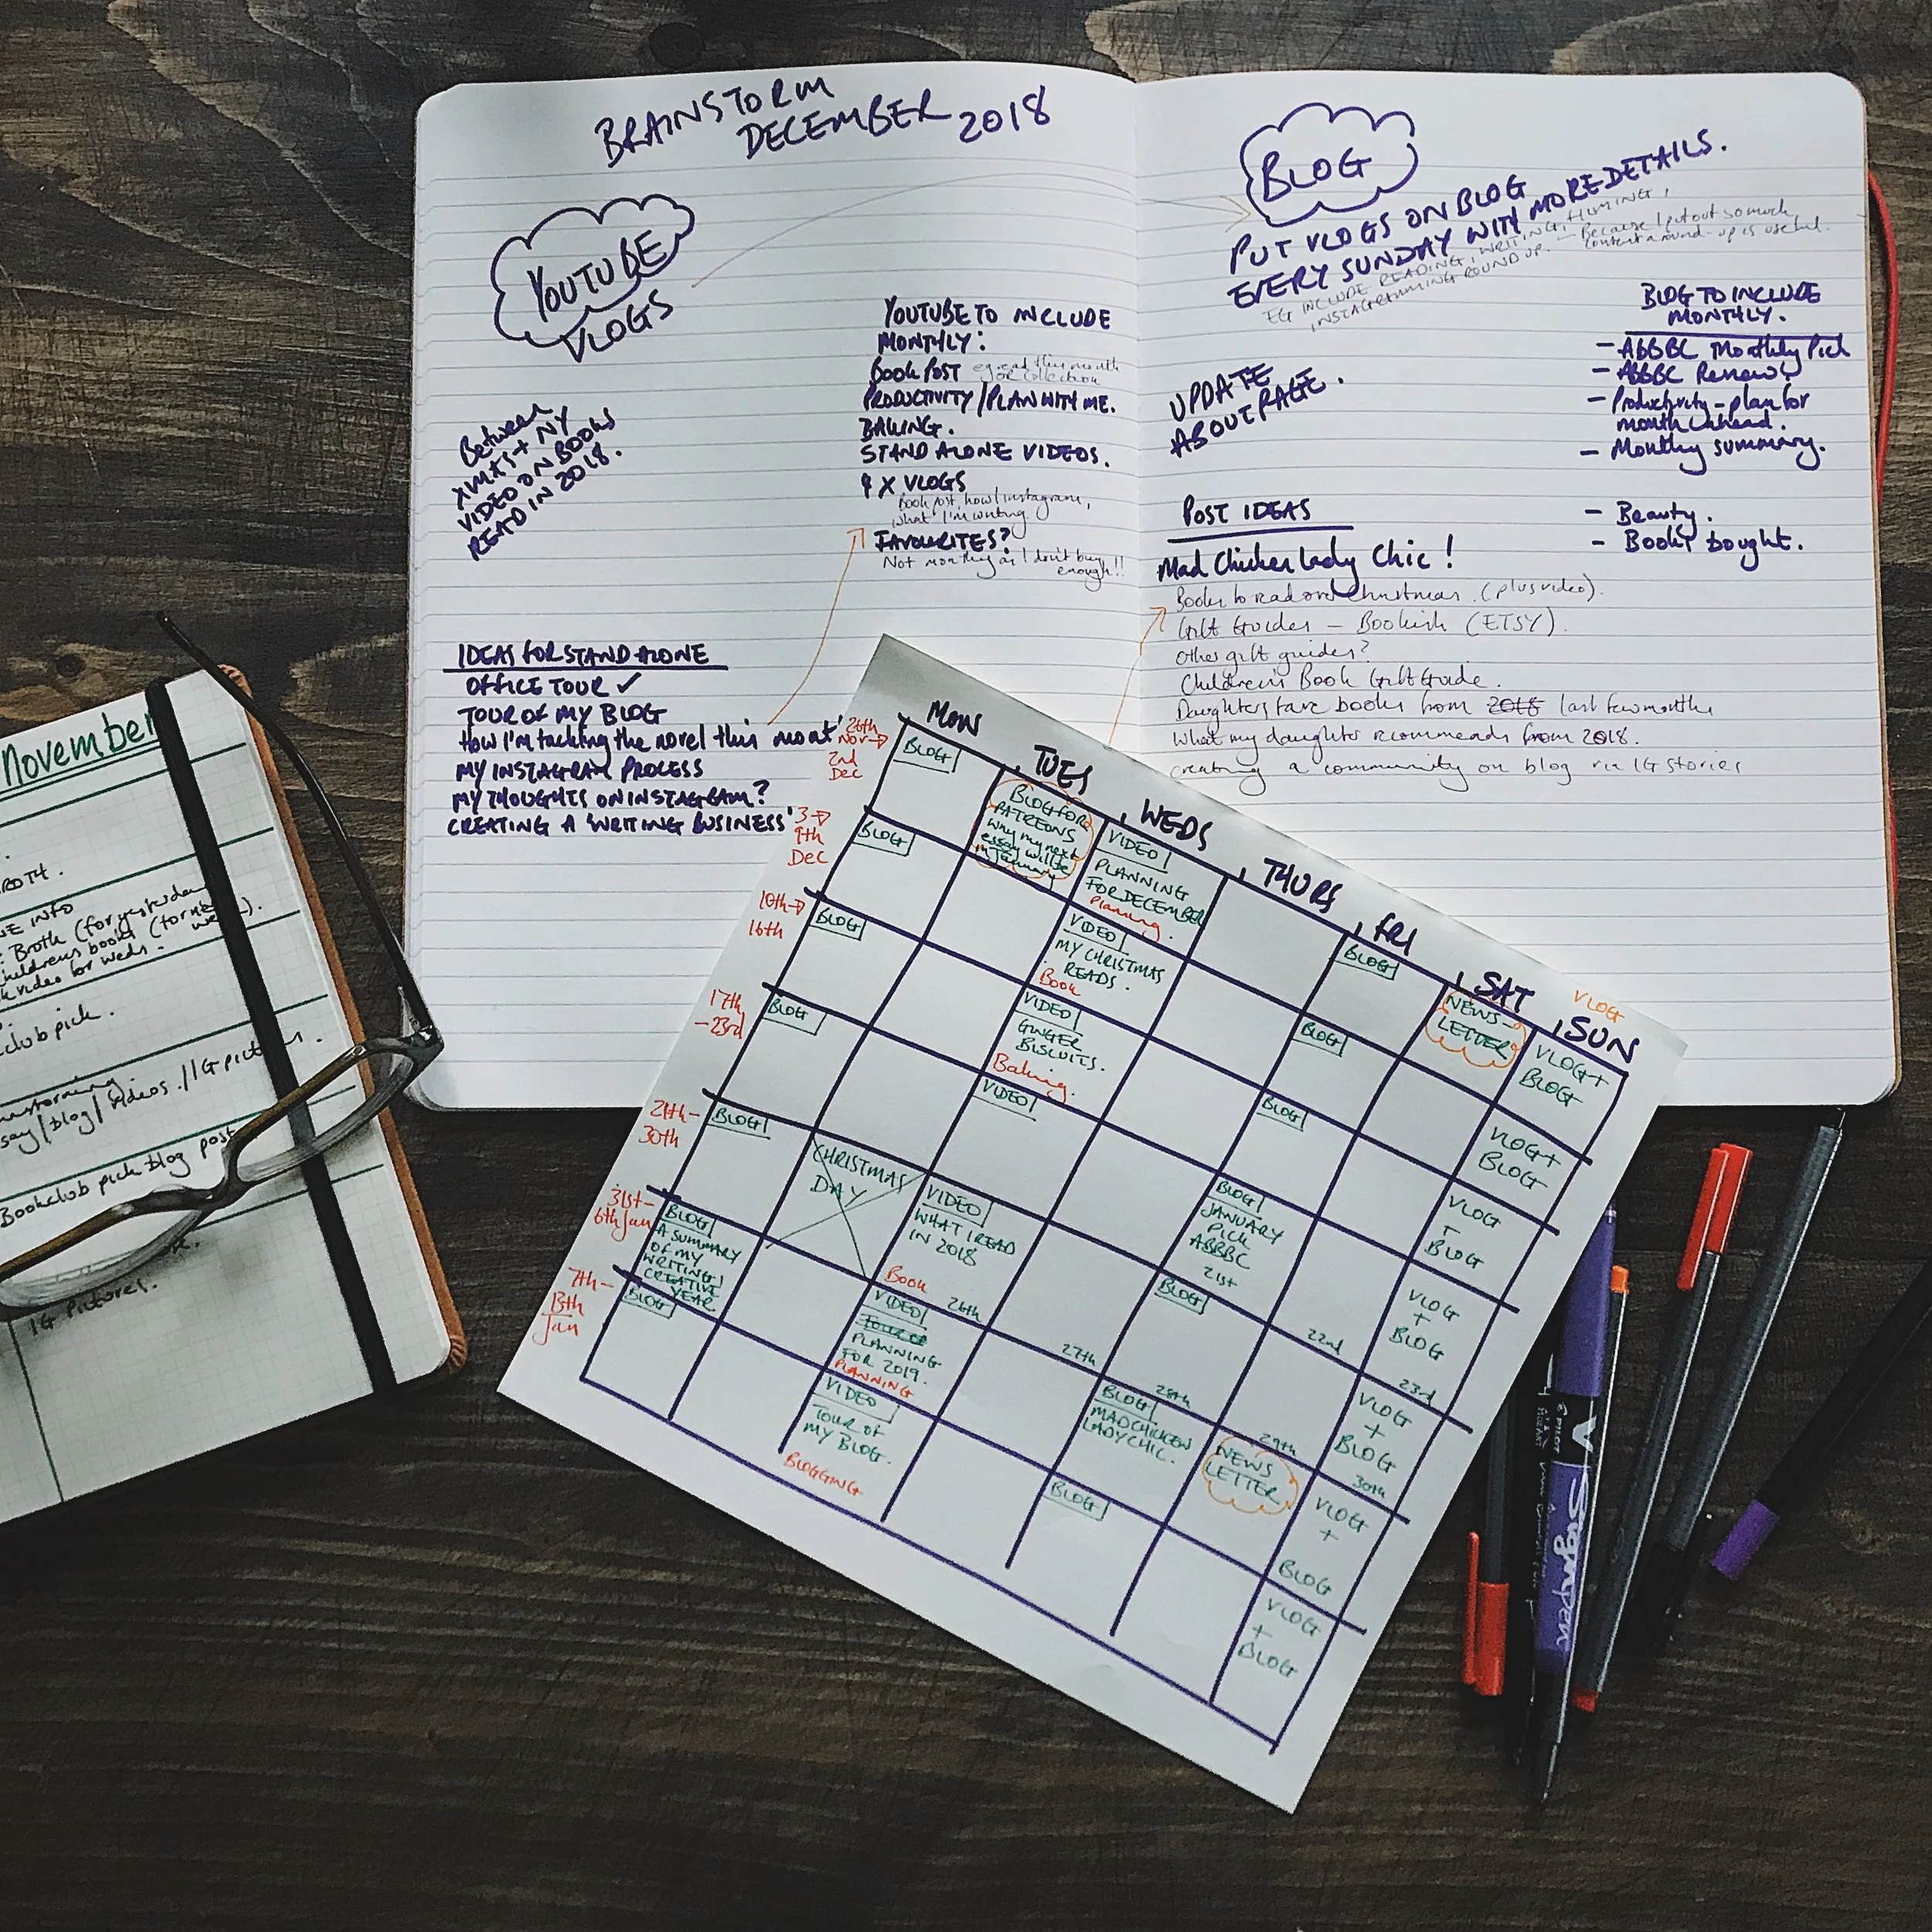 BRAINSTORM
DECEMBER 2018
YOUTUBE
VLOGS
Between
XMAS + NY
VIDEO ON BOOKS
READ IN 2018.
YOUTUBE TO INCLUDE
MONTHLY:
BOOK POST eg. read this month
or collection
PRODUCTIVITY/PLAN WITH ME.
BAKING.
STAND ALONE VIDEOS.
4 X VLOGS
Book post, how I instagram,
what I'm writing.
FAVOURITES?
Not monthly as I don't buy
enough!!
IDEAS FOR STAND ALONE
OFFICE TOUR ✓
TOUR OF MY BLOG
How I'm tackling the novel this
MY INSTAGRAM PROCESS
MY THOUGHTS ON INSTAGRAM?
CREATING A 'WRITING BUSINESS'
BLOG
PUT VLOGS ON BLOG
EVERY SUNDAY WITH MORE DETAILS.
EG INCLUDE READING, WRITING, FILMING,
INSTAGRAMMING ROUND UP. – Because I put out so much
content a round-up is useful.
UPDATE
ABOUT PAGE.
BLOG TO INCLUDE
MONTHLY.
- ABBBC Monthly Pick
- ABBBC Review
- Productivity - plan for
month ahead.
- Monthly summary.
- Beauty.
- Books bought.
POST IDEAS
Mad Chicken Lady Chic!
Books to read over Christmas. (plus video).
Gift Guides – Bookish (ETSY).
Other gift guides?
Children's Book Gift Guide.
Daughters fave books from 2018 last few months
What my daughter recommends from 2018.
creating a community on blog via IG stories
MON TUES WEDS THURS FRI SAT SUN
VLOG
26th
Nov →
2nd
Dec
BLOG
BLOG FOR
PATREONS
why my next
essay will be
in January
VIDEO
PLANNING
FOR DECEMBER
Planning.
BLOG
NEWS-
LETTER
VLOG +
BLOG
3 →
9th
Dec
BLOG
VIDEO
MY CHRISTMAS
READS.
Book
BLOG
VLOG +
BLOG
10th →
16th
BLOG
VIDEO
GINGER
BISCUITS.
Baking.
BLOG
VLOG
+
BLOG
17th
– 23rd
BLOG
VIDEO
BLOG
JANUARY
PICK
ABBBC
21st
22nd
VLOG
+
BLOG
23rd
24th –
30th
BLOG
CHRISTMAS
DAY
VIDEO
WHAT I READ
IN 2018
Book
26th
27th
BLOG
28th
29th
VLOG
+
BLOG
30th
31st –
6th Jan
BLOG
A SUMMARY
OF MY
WRITING/
CREATIVE
YEAR.
VIDEO
PLANNING
FOR 2019.
PLANNING
BLOG
MAD CHICKEN
LADY CHIC.
NEWS
LETTER
VLOG
+
BLOG
7th –
13th
Jan
BLOG
VIDEO
TOUR OF
MY BLOG.
BLOGGING
BLOG
VLOG
+
BLOG
November
INFO
Broth (for yesterday
childrens books (for
video for weds.
club pick.
say/blog/videos//IG pictures.
Bookclub pick blog post
IG Pictures.
PILOT
V
Signpen